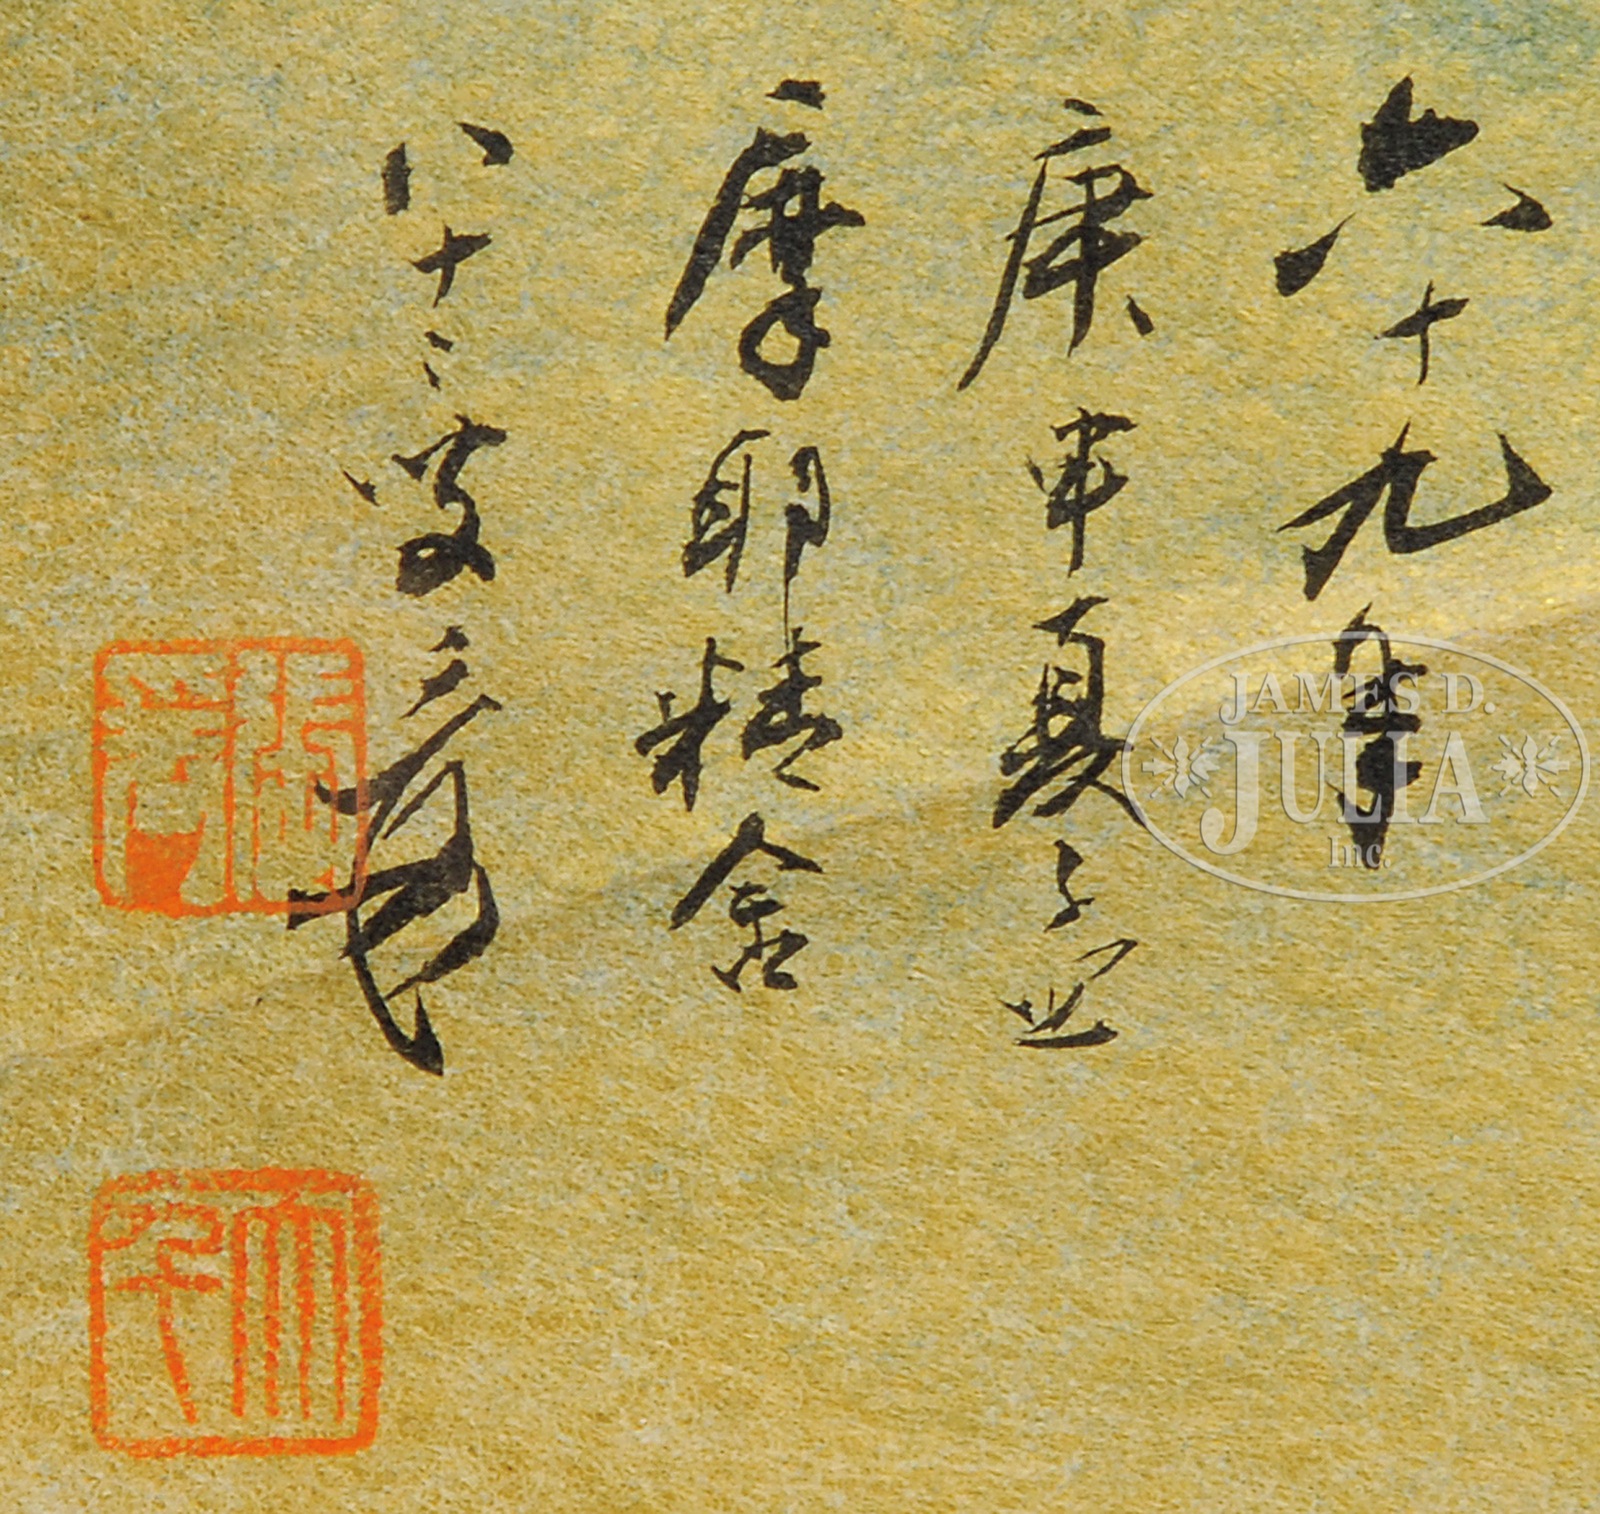 六十九年
庚申夏孟
摩耶精舍
八十二叟爰
張爰
大千
JAMES D.
JULIA
Inc.